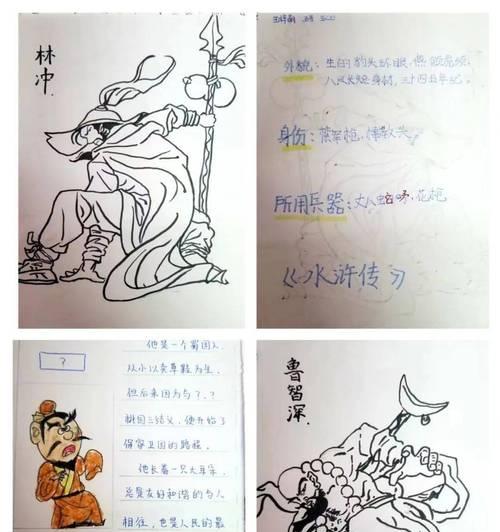 林冲.
外貌：生的豹头环眼，燕颔虎须，
八尺长短身材，三十四五年纪。
身份：枪，棒教头
所用兵器：丈八蛇矛，花枪
《水浒传》
？
他是一个蜀国人，
从小以卖草鞋为生，
但后来因为与？？
桃园三结义，便开始了
保家卫国的路程。
他长着一只大耳朵
总是友好和谐的与人
相位，也是人民的最
鲁智深.